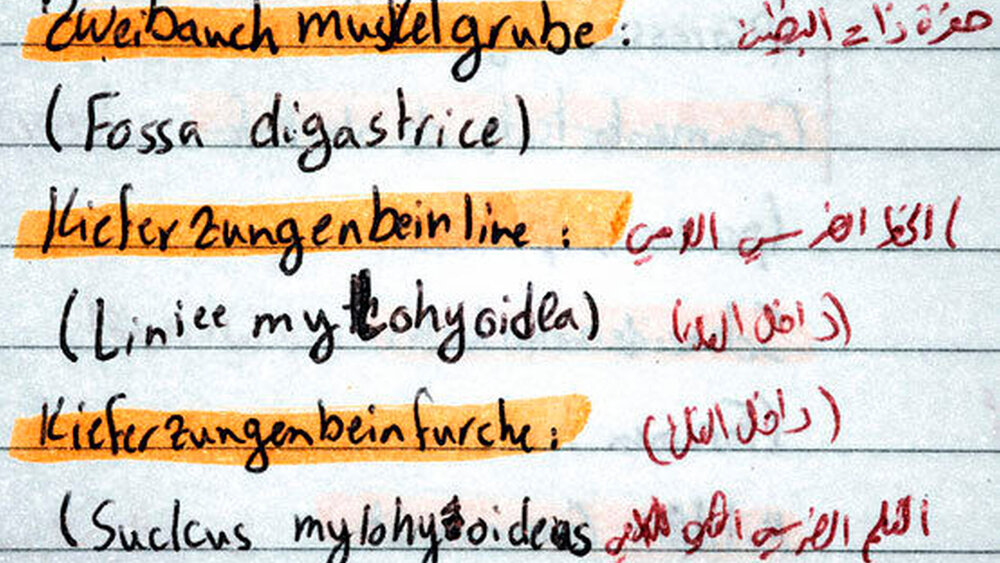 Zweibauch muskelgrube : حفرة ذات البطين
(Fossa digastrice)
Kieferzungenbeinline : الخط الضرسي اللامي (
(Liniee mylohyoidea) (داخل
Kieferzungenbeinfurche : (داخل
(Suclcus mylohyoideus الثلم الضرسي